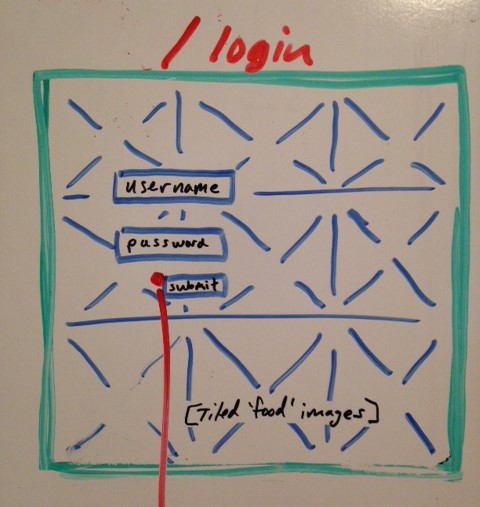 /login
username
password
submit
[Tiled 'food' images]